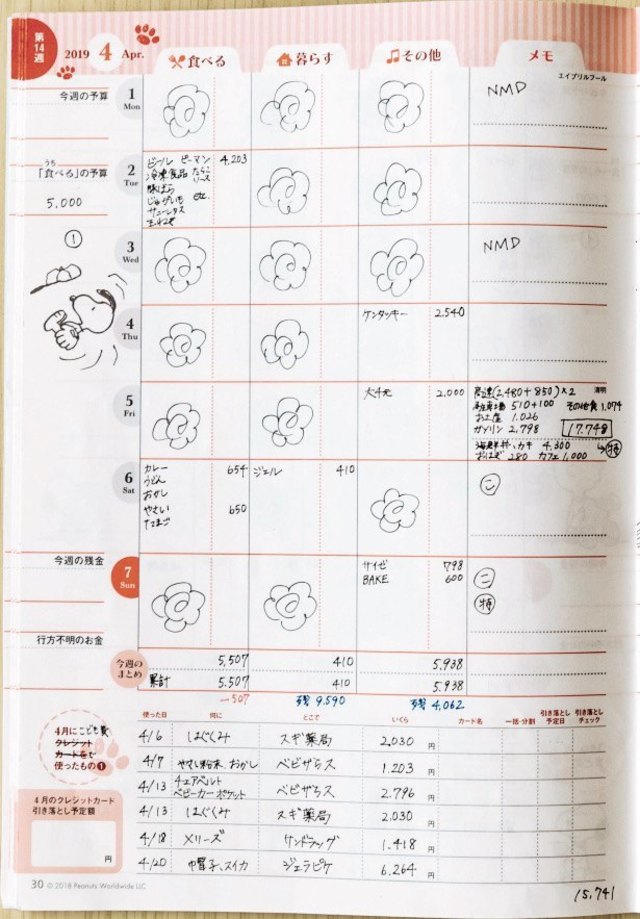 第14週
2019 4 Apr.
食べる
暮らす
その他
メモ
エイプリルフール
今週の予算
1 Mon
NMD
うち
「食べる」の予算
5,000
2 Tue
ビール ピーマン 4,203
冷凍食品 たらこ
ソース
豚ばら
じゃがいも etc.
サニーレタス
玉ねぎ
①
3 Wed
NMD
4 Thu
ケンタッキー 2.540
5 Fri
2.000
清明
高速(2,480+850)×2
駐車場 510+100 その他食 1,074
お土産 1.026
ガソリン 2,798 17.748
海鮮丼、カキ 4,300
おはぎ 280 カフェ 1,000
特
6 Sat
カレー 654
うどん
おかし
やさい 650
たまご
ジェル 410
こ
今週の残金
7 Sun
サイゼ 798
BAKE 600
こ
特
行方不明のお金
今週のまとめ
5,507 410 5.938
累計 5.507 410 5.938
-507 残 9,590 残 4,062
使った日 何に どこで いくら カード名 一括・分割 引き落とし予定日 引き落としチェック
4月にこども費
クレジット
カードをで
使ったもの❶
4/6 はぐくみ スギ薬局 2.030 円
4/7 やさい粉末 おかし ベビザらス 1.203 円
4/13 チェアベルト
ベビーカーポケット ベビザらス 2.796 円
4/13 はぐくみ スギ薬局 2.030 円
4/18 メリーズ サンドラッグ 1.418 円
4/20 巾着子、スイカ ジェラピケ 6.264 円
4月のクレジットカード
引き落とし予定額
円
30 © 2018 Peanuts Worldwide LLC
15.741